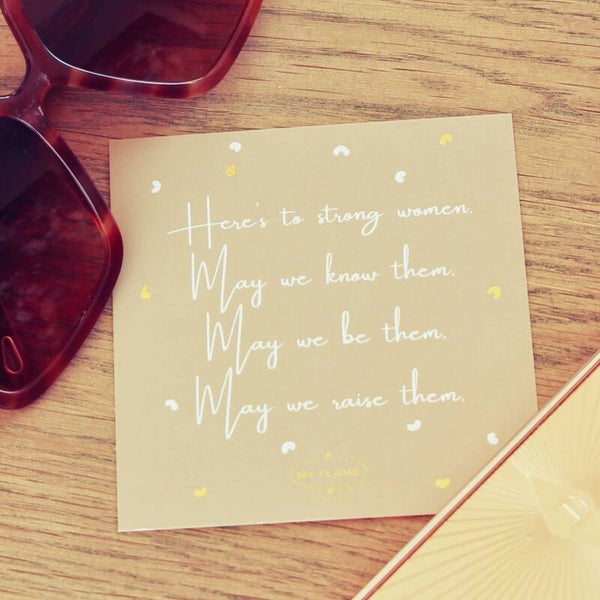 Here's to strong women.
May we know them.
May we be them.
May we raise them.
MY FLAME